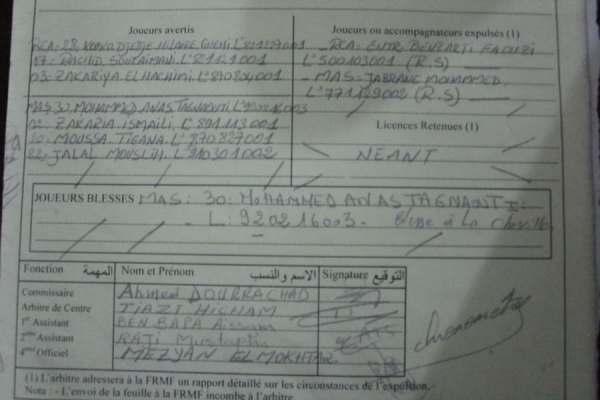 Joueurs avertis
Joueurs ou accompagnateurs expulsés (1)
RCA: 28,
L: 811217001
17. RACHID. SOULAIMANI L: 821121001
03. ZAKARIYA EL HACHIMI L: 870804001
MAS 30. MOHAMMED ANAS TAGNAOUTI L:
02. ZAKARIA ISMAILI, L: 891113001
20. MOUSSA. TIGANA. L: 870827001
22. JALAL MOUSLIH. L: 910301002
RCA: ENTR BENZARTI FAOUZI
L: 500103001 (R.S)
MAS: JABRANE MOHAMMED
L: 771129002 (R.S)
Licences Retenues (1)
NEANT
JOUEURS BLESSES MAS: 30: MOHAMMED ANAS TAGNAOUTI
L: 920216003- à la cheville
Fonction المهمة Nom et Prénom الاسم والنسب Signature التوقيع
Commissaire Ahmed DOURRACHAD
Arbitre de Centre TIAZI HICHAM
1er Assistant BEN BABA Aissam
2ème Assistant RATI Mustapha
4ème Officiel MEZYAN EL MOKHTAR
(1) L'arbitre adressera à la FRMF un rapport détaillé sur les circonstances de l'expulsion.
Nota : - L'envoi de la feuille à la FRMF incombe à l'arbitre